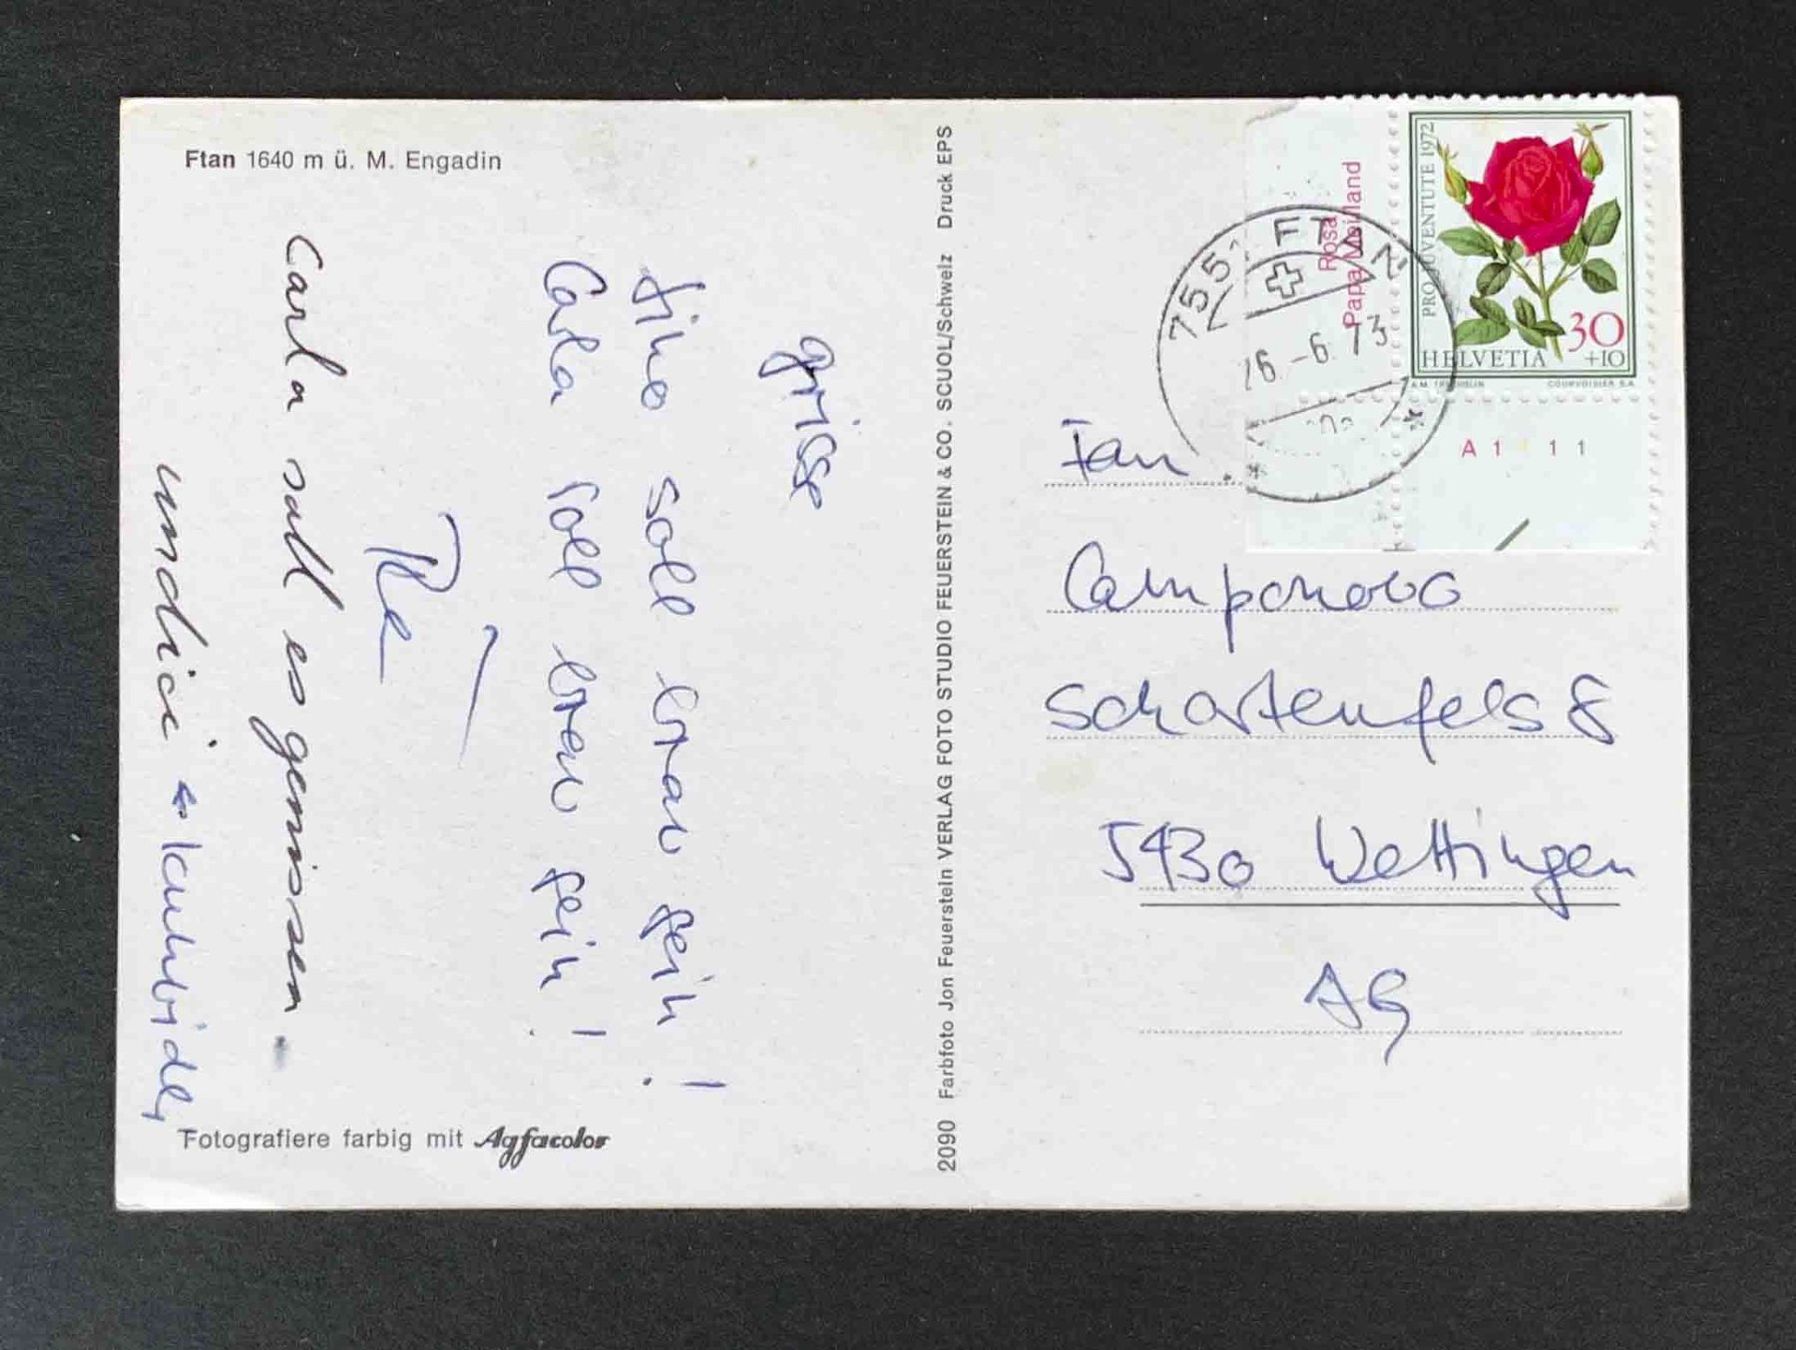 Ftan 1640 m ü. M. Engadin
grisse
Gino soll brav sein!
Carla soll brav sein!
Carla soll es geniessen.
Fotografiere farbig mit Agfacolor
2090 Farbfoto Jon Feuerstein VERLAG FOTO STUDIO FEUERSTEIN & CO. SCUOL/Schweiz Druck EPS
Rosa
Papa Meilland
PRO JUVENTUTE 1972
30
+10
HELVETIA
COURVOISIER S.A.
A1 11
FTAN
-6. 73
Fam
Camponovo
Schartenfels 8
5430 Wettingen
AG